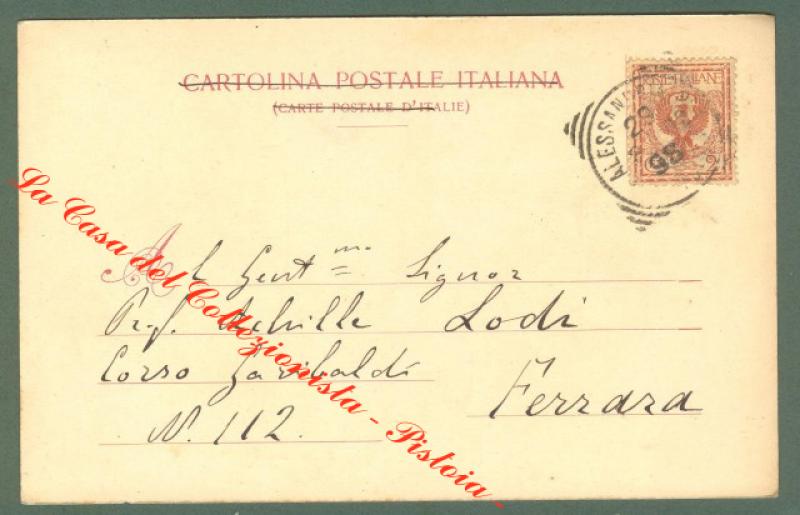 CARTOLINA POSTALE ITALIANA
(CARTE POSTALE D'ITALIE)
POSTE ITALIANE
2
ALESSANDRIA
20
98
Al Gent.mo Signor
Prof. Achille Lodi
Corso Garibaldi
Ferrara
N. 112.
La Casa del Collezionista - Pistoia -